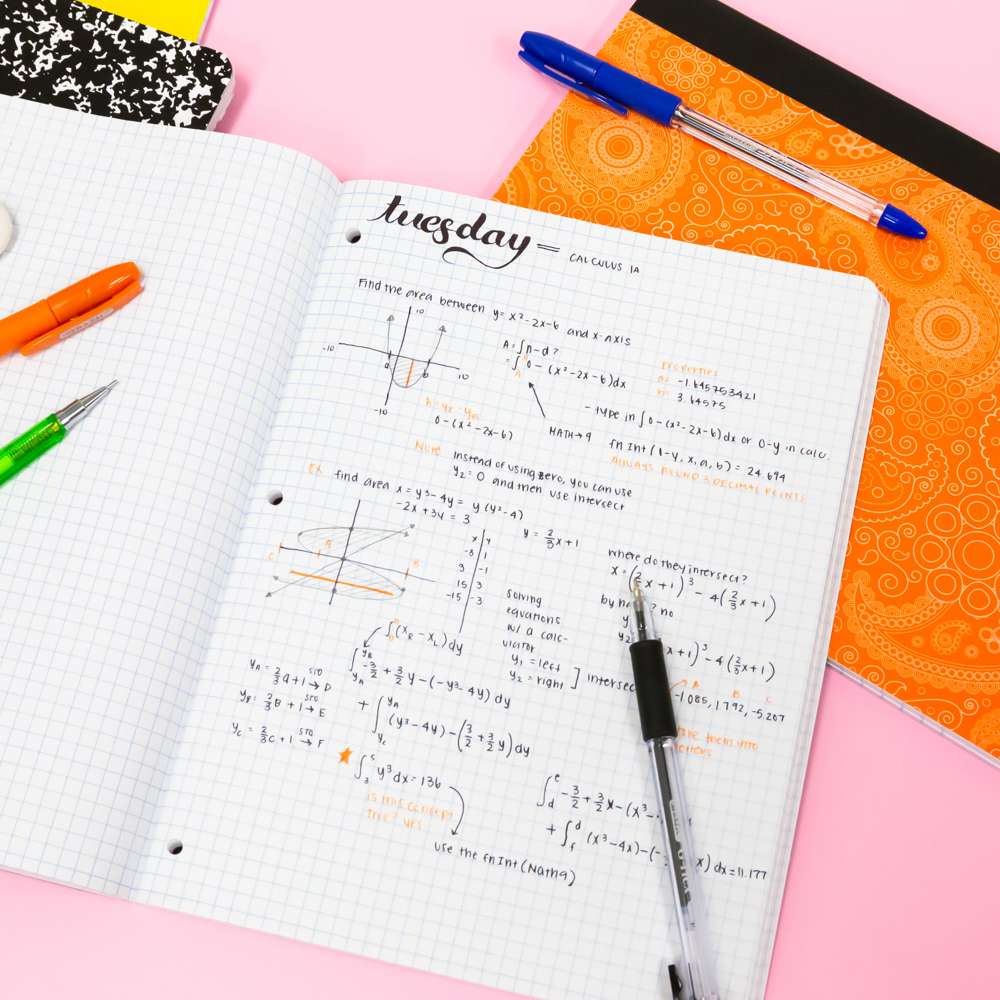 tuesday
CALCULUS 1A
Find the area between y = x² - 2x - 6 and x-axis
10
-10
10
-10
A = ∫ n - d ?
= ∫ 0 - (x² - 2x - 6) dx
A
-1.645753421
3.64575
0 - (x² - 2x - 6)
MATH → 9
- type in ∫ 0 - (x² - 2x - 6) dx or 0 - y in calc.
fn Int (0 - y, x, a, b) = 24.694
ALWAYS ROUND 3 DECIMAL POINTS
Note Instead of using zero, you can use
y₂ = 0 and then use intersect
EX find area x = y³ - 4y = y (y² - 4)
-2x + 3y = 3
y = 2/3 x + 1
C
A
B
x y
-3 1
3 -1
15 3
-15 -3
where do they intersect?
x = (2/3 x + 1)³ - 4(2/3 x + 1)
by ? no
x + 1)³ - 4(2/3 x + 1)
solving
equations
w/ a calc-
ulator
y₁ = left
y₂ = right ] intersec
A B C
-1.085, 1.792, -5.207
∫ (x_R - x_L) dy
∫ -3/2 + 3/2 y - (-y³ - 4y) dy
+ ∫ (y³ - 4y) - (3/2 + 3/2 y) dy
y_A = 2/3 a + 1 STO → D
y_B = 2/3 B + 1 STO → E
y_C = 2/3 C + 1 STO → F
∫₃⁵ y³ dx = 136
is this concept
true? yes
use the fn Int (Math 9)
∫ -3/2 + 3/2 x - (x³ -
+ ∫ (x³ - 4x) - (- x) dx = 11.177